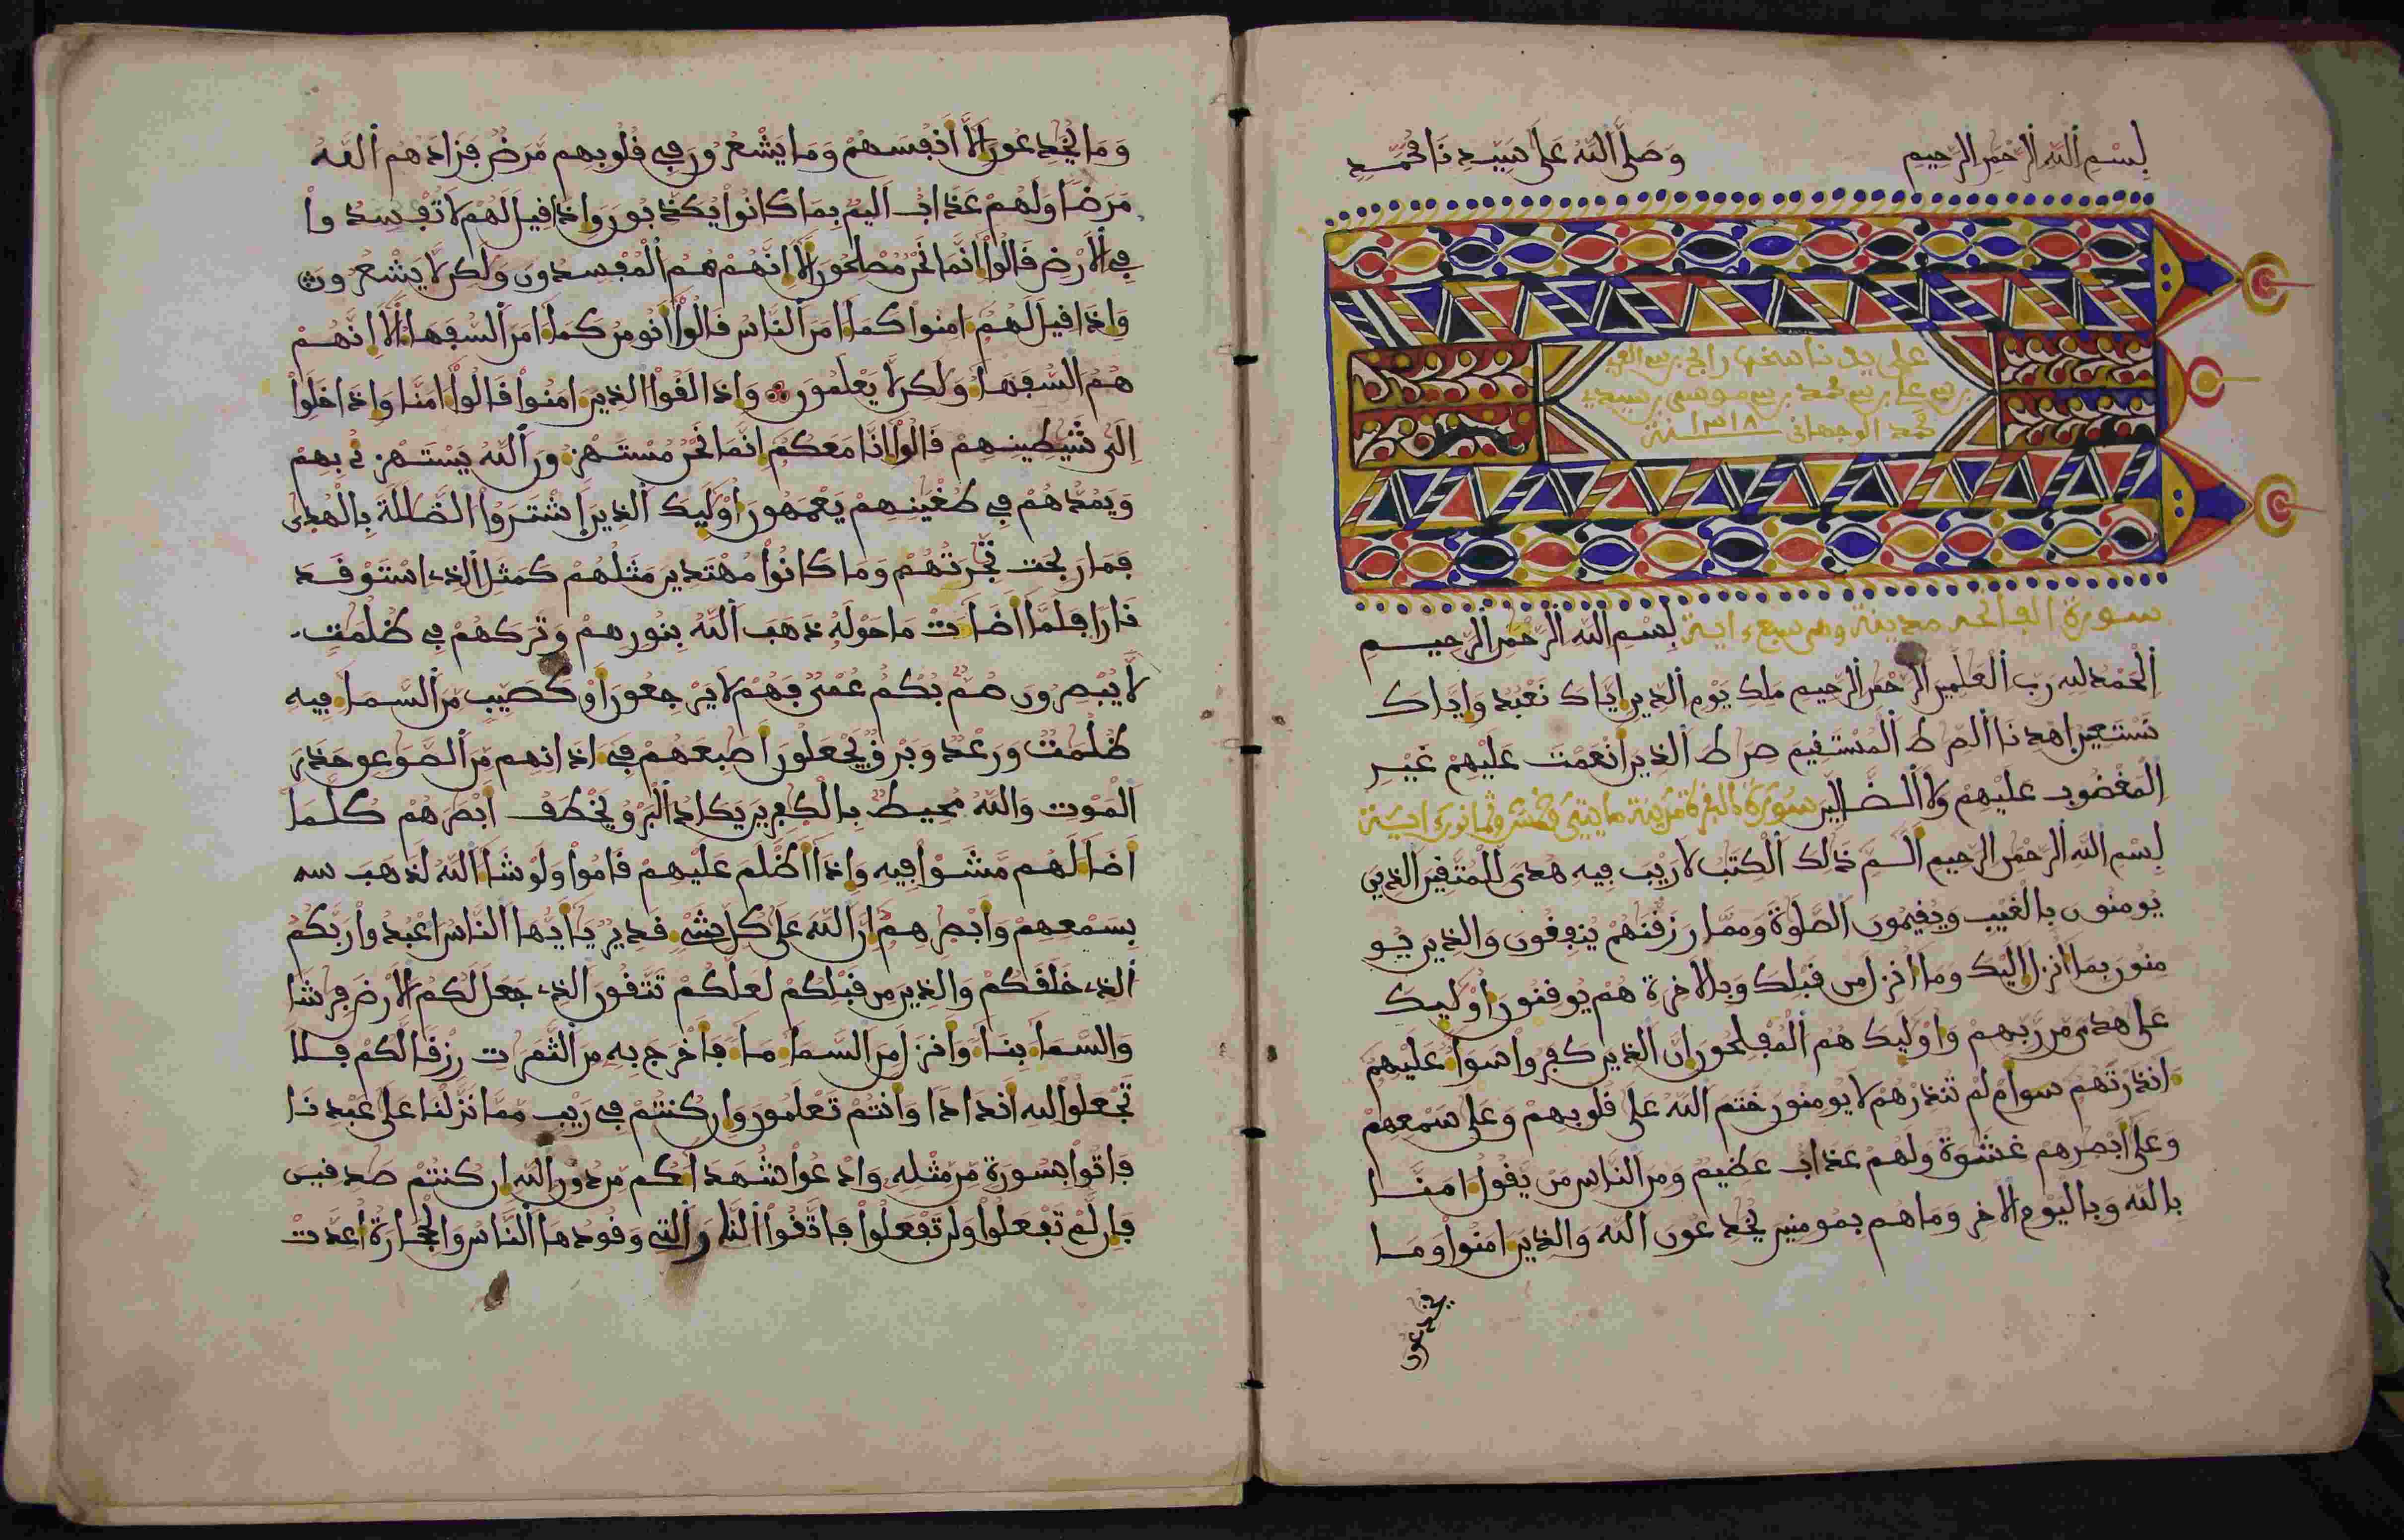 بسم الله الرحمن الرحيم وصلى الله على سيدنا محمد
على يد ناسخها رابح بن العربي
بن علي بن محمد بن موسى بن سيدي
محمد الوجهاني سنة ١٣١٨
سورة الفاتحة مدينة وهي سبع ءاية بسم الله الرحمن الرحيم
الحمد لله رب العلمين الرحمن الرحيم ملك يوم الدين اياك نعبد واياك
نستعين اهدنا الصرط المستقيم صرط الذين انعمت عليهم غير
المغضوب عليهم ولا الضالين سورة البقرة مدينة مايتين وخمس وثمانون ءاية
بسم الله الرحمن الرحيم الم ذالك الكتب لا ريب فيه هدى للمتقين الذين
يومنون بالغيب ويقيمون الصلوة ومما رزقنهم ينفقون والذين يو
منون بما انزل اليك وما انزل من قبلك وبالاخرة هم يوقنون اوليك
على هدى من ربهم واوليك هم المفلحون ان الذين كفروا سوا عليهم
انذرتهم سوام لم تنذرهم لا يومنون ختم الله على قلوبهم وعلى سمعهم
وعلى ابصرهم غشوة ولهم عذاب عظيم ومن الناس من يقول امنا
بالله وباليوم الاخر وما هم بمومنين يخدعون الله والذين امنوا وما
يخدعون
وما يخدعون الا انفسهم وما يشعرون في قلوبهم مرض فزادهم الله
مرضا ولهم عذاب اليم بما كانوا يكذبون واذا قيل لهم لا تفسدوا
في الارض قالوا انما نحن مصلحون الا انهم هم المفسدون ولكن لا يشعرون
واذا قيل لهم امنوا كما امن الناس قالوا انومن كما امن السفها الا انهم
هم السفها ولكن لا يعلمون واذا لقوا الذين امنوا قالوا امنا واذا خلوا
الى شيطينهم قالوا انا معكم انما نحن مستهزءون الله يستهزئ بهم
ويمدهم في طغينهم يعمهون اوليك الذين اشتروا الضللة بالهدى
فما ربحت تجرتهم وما كانوا مهتدين مثلهم كمثل الذي استوقد
نارا فلما اضات ما حوله ذهب الله بنورهم وتركهم في ظلمت
لا يبصرون صم بكم عمى فهم لا يرجعون او كصيب من السما فيه
ظلمت ورعد وبرق يجعلون اصبعهم في اذانهم من الصوعق حذر
الموت والله محيط بالكفرين يكاد البرق يخطف ابصرهم كلما
اضا لهم مشوا فيه واذا اظلم عليهم قاموا ولو شا الله لذهب سه
بسمعهم وابصرهم ان الله على كل شي قدير يايها الناس اعبدوا ربكم
الذي خلقكم والذين من قبلكم لعلكم تتقون الذي جعل لكم الارض فرشا
والسما بنا وانزل من السما ما فاخرج به من الثمرت رزقا لكم فلا
تجعلوا لله اندادا وانتم تعلمون وان كنتم في ريب مما نزلنا على عبدنا
فاتوا بسورة من مثله وادعوا شهداكم من دون الله ان كنتم صدقين
فان لم تفعلوا ولن تفعلوا فاتقوا النار التي وقودها الناس والحجارة اعدت